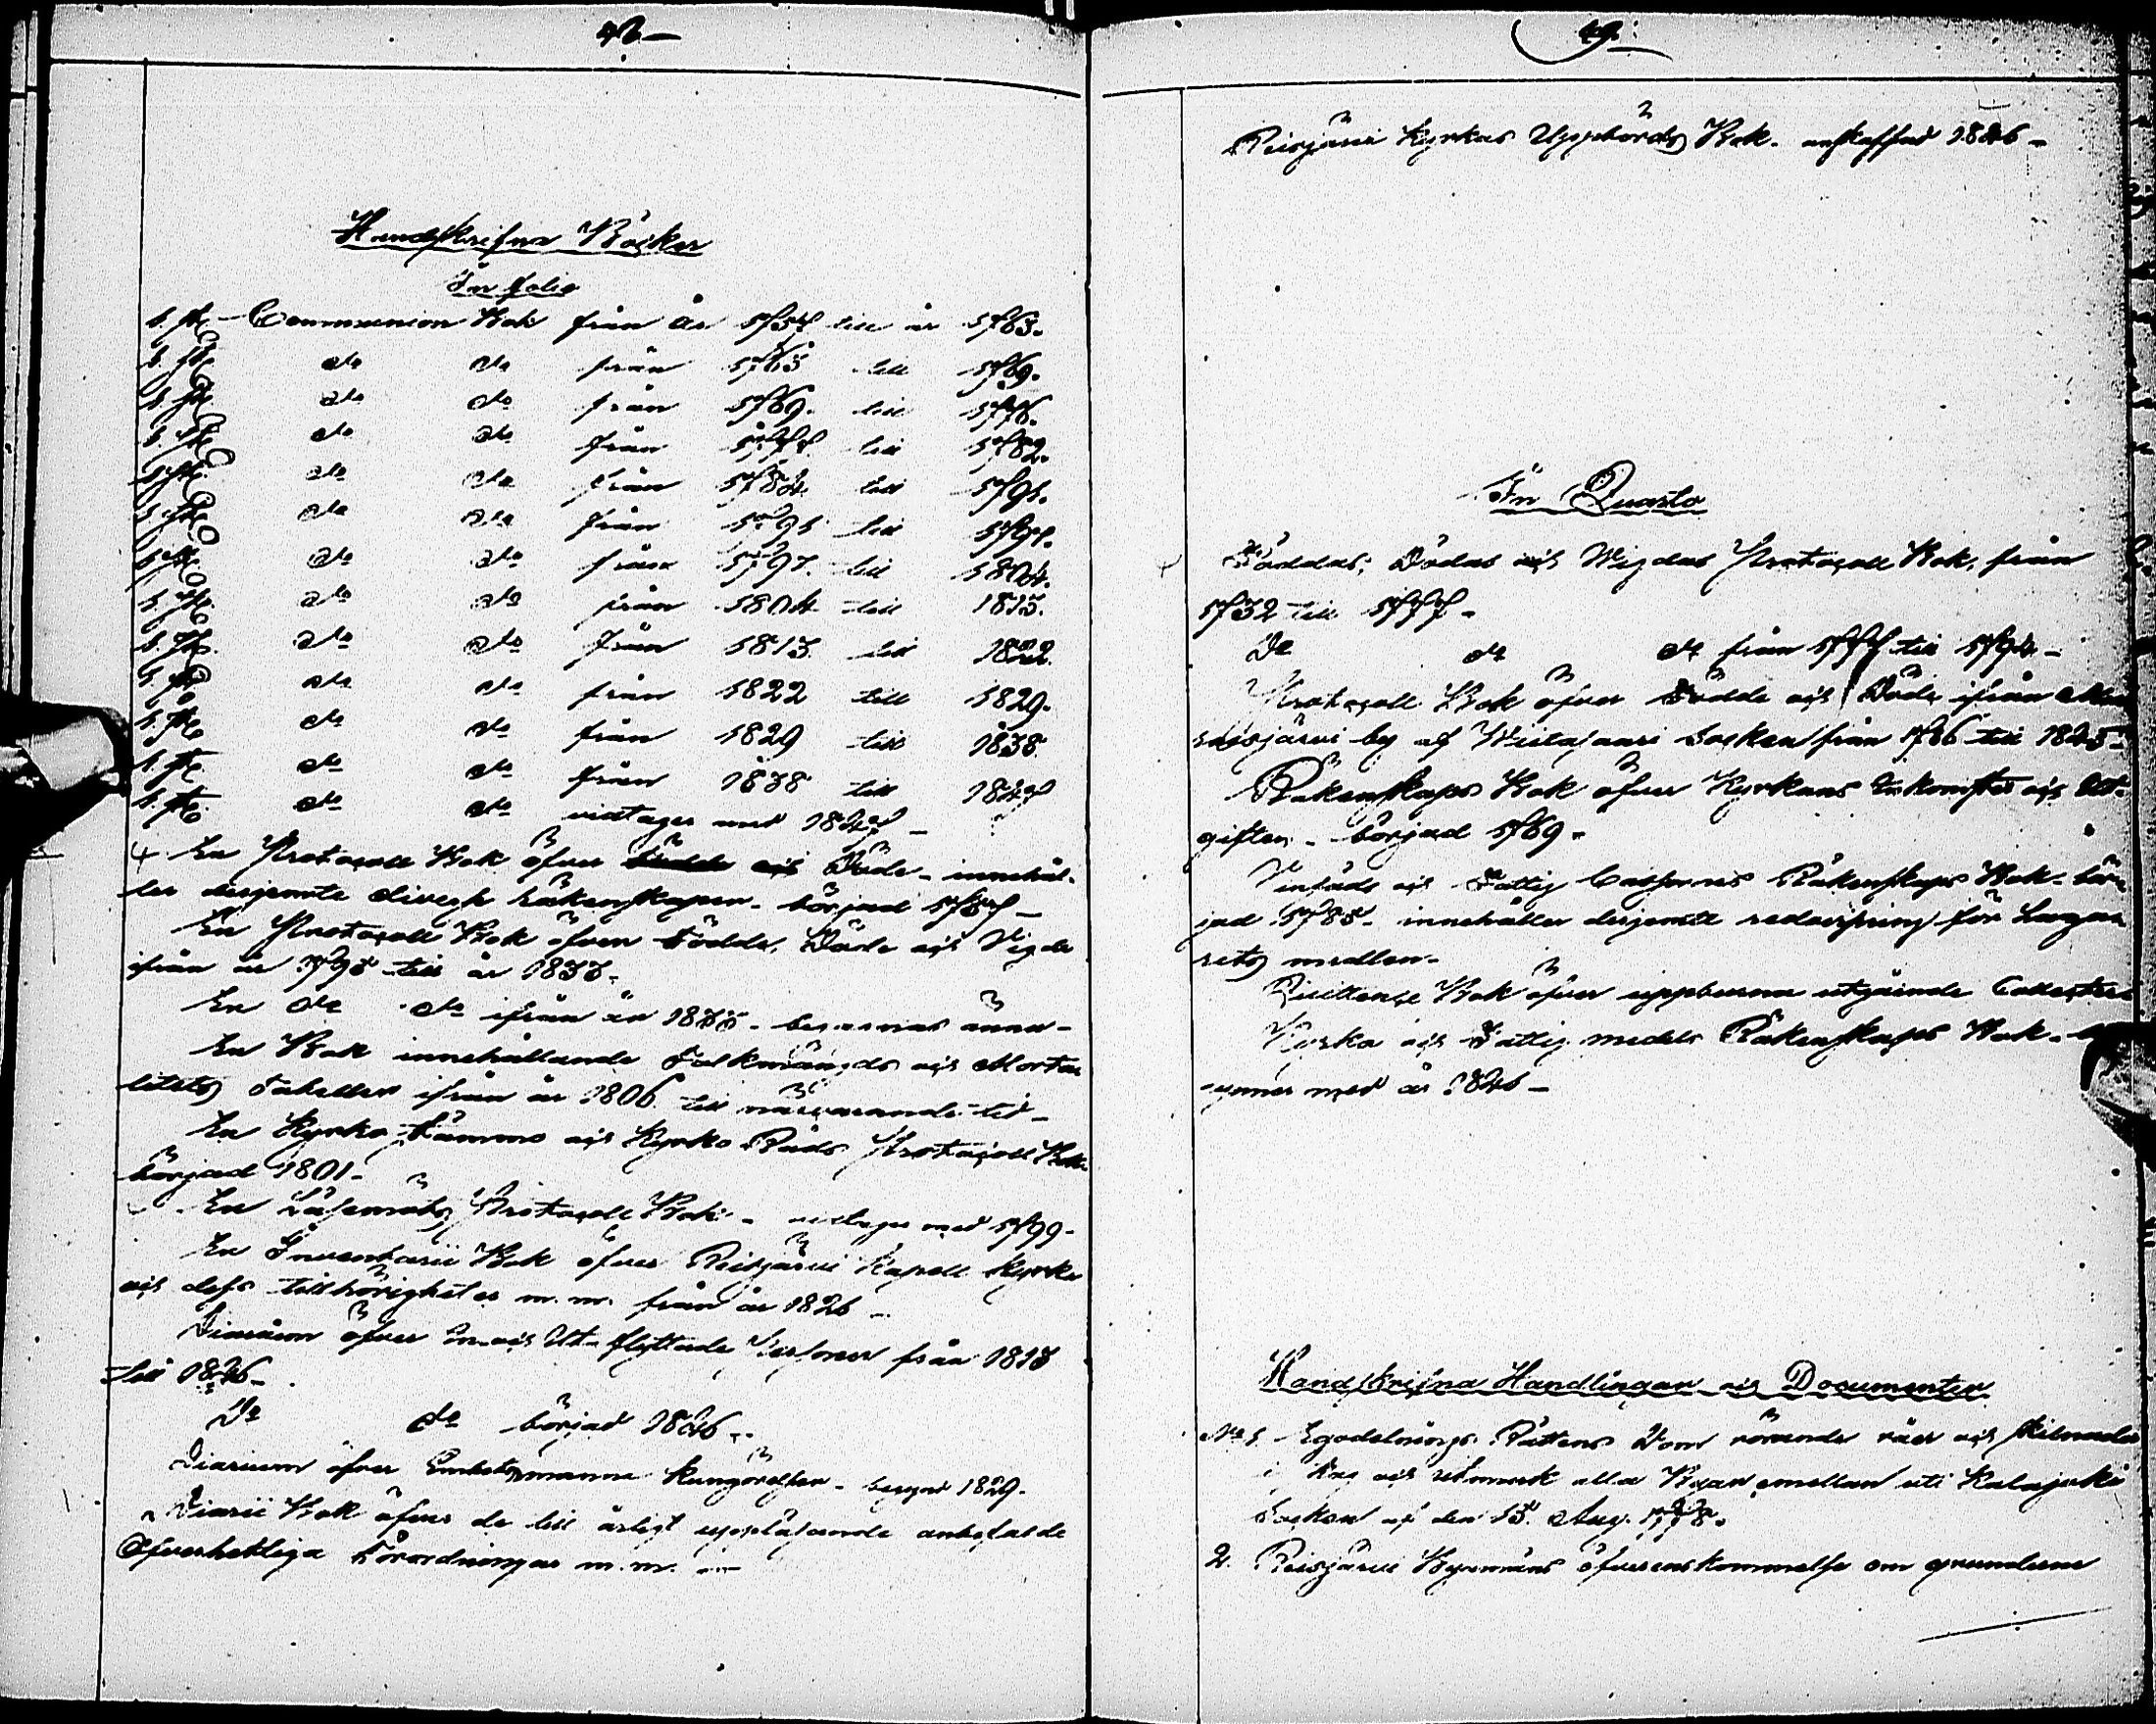 48
Handskrifna Böcker
In folio
1. st. Communion Bok från år 1757 till år 1763.
1. st. do do från 1763 till 1769.
1. st. do do från 1769. till 1776.
1. st. do do från 1777. till 1782.
1. st. do do från 1784. till 1791.
1. st. do do från 1791 till 1797.
1. st. do do från 1797. till 1804.
1. st. do do från 1804 till 1813.
1. st. do do från 1813. till 1822.
1. st. do do från 1822 till 1829.
1. st. do do från 1829 till 1838.
1. st. do do från 1838 till 1847
1. st. do do vidtager med 1847 –
En Protocoll Bok öfver Födde och Döde – innehål-
ler desjemte diverse räkenskaper – börjad 1767 –
En Protocoll Bok öfver Födde, Döde och Vigde
ifrån år 1795 till år 1833.
En do do ifrån år 1833 – begagnas ännu –
En Bok innehållande Folkmängds och Morta-
litets Tabeller ifrån år 1806. till närvarande tid –
En Kyrko-Stämmo och Kyrko Råds Protocoll Bok
börjad 1801 –
En Läsemöts Protocoll Bok – vidtager med 1799 –
En Inventarii Bok öfver Reisjärvi Kapell Kyrka
och dess tillhörigheter m. m. från år 1826 –
Diarium öfver In- och Ut-flyttade Personer från 1818
till 1846 –
Do do börjad 1846 –
Diarium öfver Embetsmanna kungörelser – begynt 1829.
Diarii Bok öfver de till årligt uppläsande anbefalde
Öfverhetliga Förordningar m. m. –
49.
Reisjärvi Kyrkas Uppbörds Bok – anskaffad 1846 –
In Quarto
Föddas, Dödas och Wigdas Protocoll Bok, från
1732 till 1777 –
Do do do från 1777 till 1794 –
Protocoll Bok öfver Födde och Döde ifrån
by af Wiitasaari Socken från 1786 till 1825 –
Räkenskaps Bok öfver Kyrkans Inkomster och Ut-
gifter – börjad 1769 –
och Fattig Cassornes Räkenskaps Bok – bör-
jad 1785 – innehåller desjemte redovisning för Laza-
retts medlen –
Quittence Bok öfver uppburna utgående Collecter
Kyrko och Fattig medels Räkenskaps Bok –
med år 1846 –
Handskrifna Handlingar och Documenter
No 1. Egodelnings Rättens Dom rörande råer och skilnader
i skog och utmark alla Byar emellan uti Kalajoki
Socken af den 15. Aug. 1778.
2. Reisjärvi Byemäns öfverenskommelse om grunderne